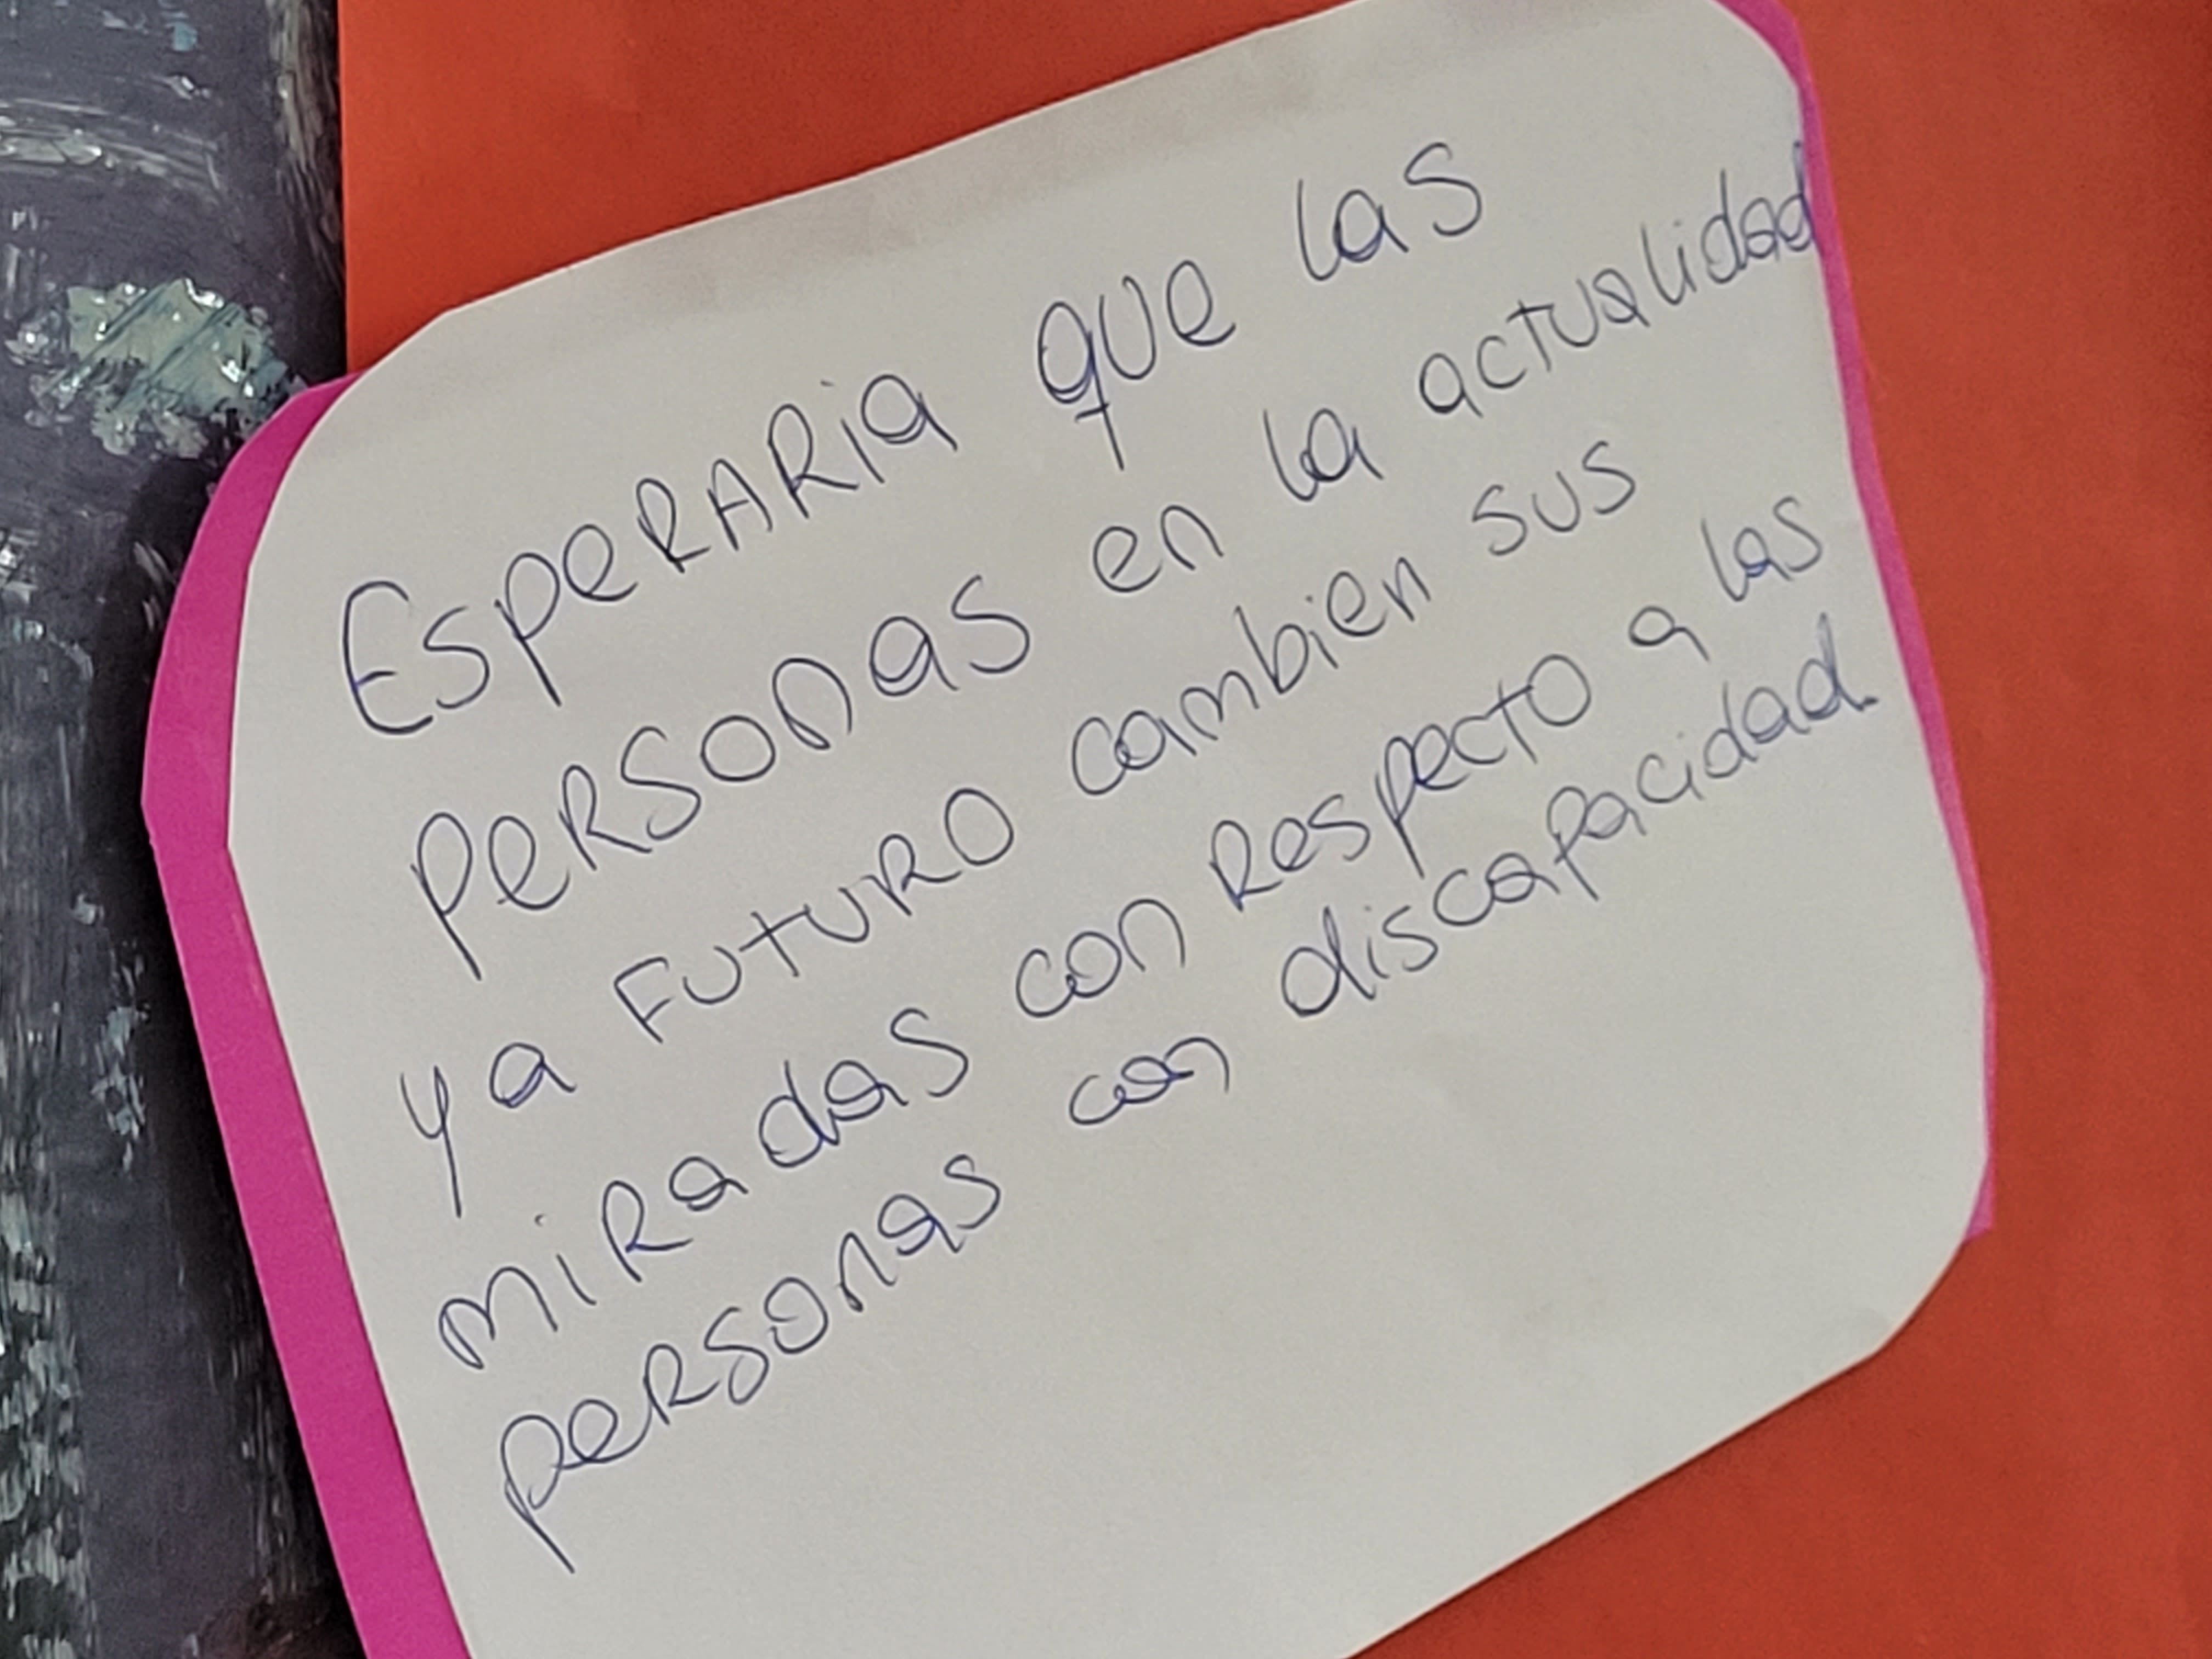 Esperaria que las
personas en la actualidad
y a futuro cambien sus
miradas con respecto a las
personas con discapacidad